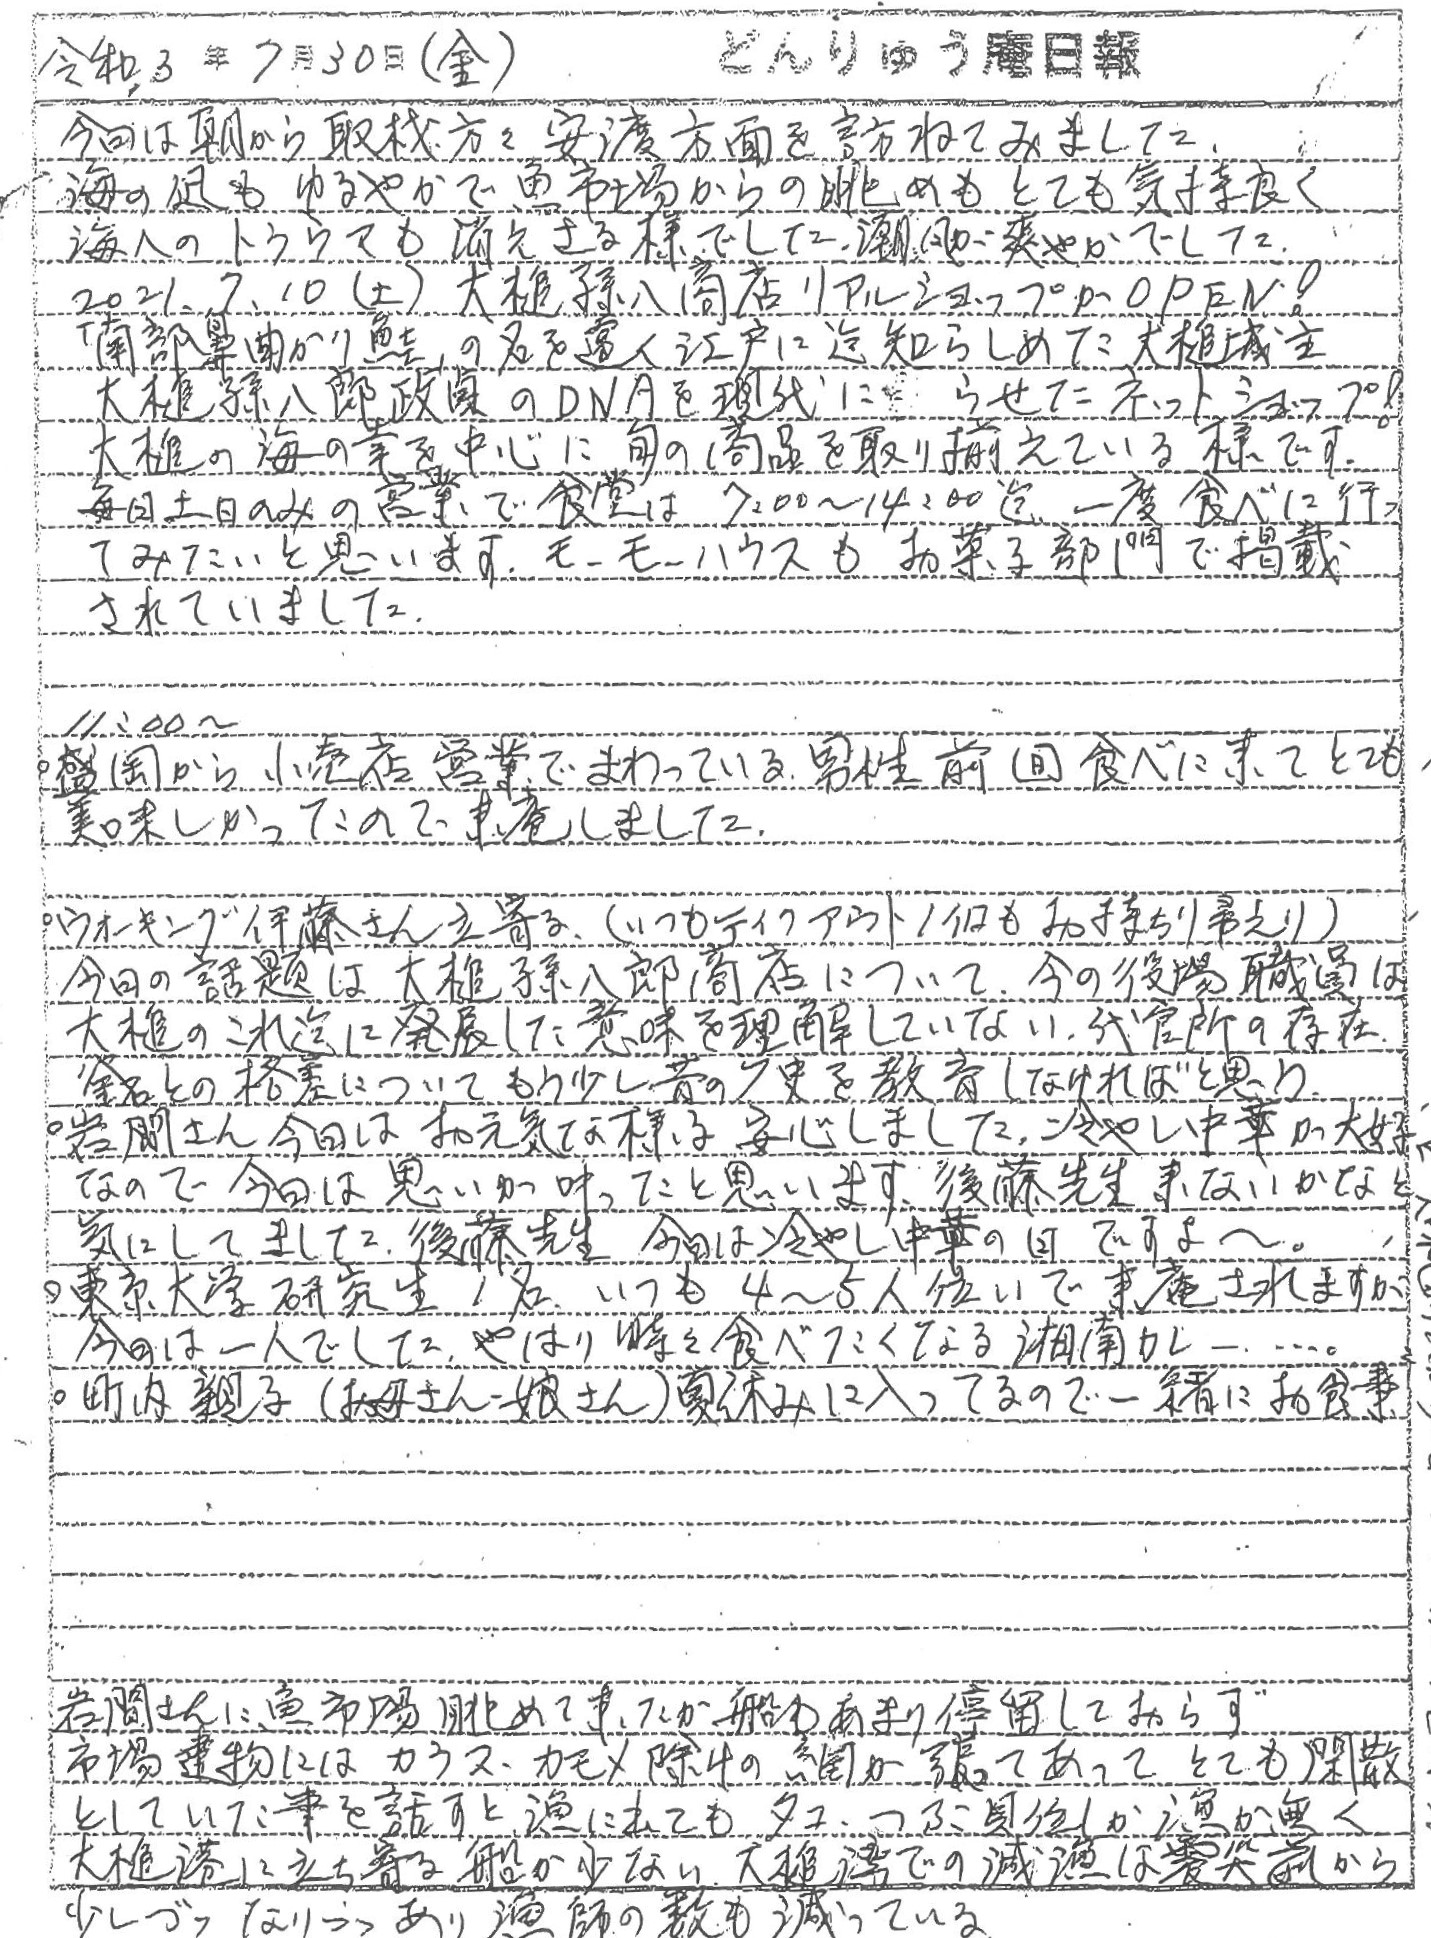 令和3年7月30日(金) どんりゅう庵日報
今回は朝から取材方々安渡方面を訪ねてみました.
海の凪もゆるやかで魚市場からの眺めもとても気持良く
海へのトラウマも消えさる様でした.潮風が爽やかでした.
2021、7、10(土)大槌孫八商店リアルショップがOPEN!
「南部鼻曲がり鮭」の名を遠く江戸に迄知らしめた大槌城主
大槌孫八郎政貞のDNAを現代に らせたネットショップ!
大槌の海の幸を中心に旬の商品を取り揃えている様です.
毎日土日のみの営業で食堂は7:00〜14:00迄、一度食べに行っ
てみたいと思います.モーモーハウスもお菓子部門で掲載
されていました.
11:00〜
○盛岡から小売店営業でまわっている男性前回食べに来てとても
美味しかったので来庵しました.
○ウォーキング伊藤さん立寄る、(いつもテイクアウト1個もお持ち帰えり)
今日の話題は大槌孫八郎商店について、今の役場職員は
大槌のこれ迄に発展した意味を理解していない.代官所の存在.
釜石との格差についてもう少し昔の歴史を教育しなければと思う.
○岩間さん今日はお元気な様子安心しました.冷やし中華が大好き
なので今日は思いが叶ったと思います.後藤先生来ないかなと
気にしてました.後藤先生 今日は冷やし中華の日ですよ〜。
○東京大学研究生1名、いつも4〜5人位いで来庵されますが
今日は一人でした.やはり時々食べたくなる湘南カレー.....。
○町内親子(お母さん-娘さん)夏休みに入ってるので一緒にお食事
岩間さんに魚市場眺めて来たが船もあまり停留しておらず
市場建物にはカラス、カモメ除けの網が張ってあってとても閑散
としていた事を話すと漁に出てもタコ、つぶ貝位しか漁が無く
大槌港に立ち寄る船が少ない.大槌湾での減漁は震災前から
少しづつなりつつあり漁師の数も減っている